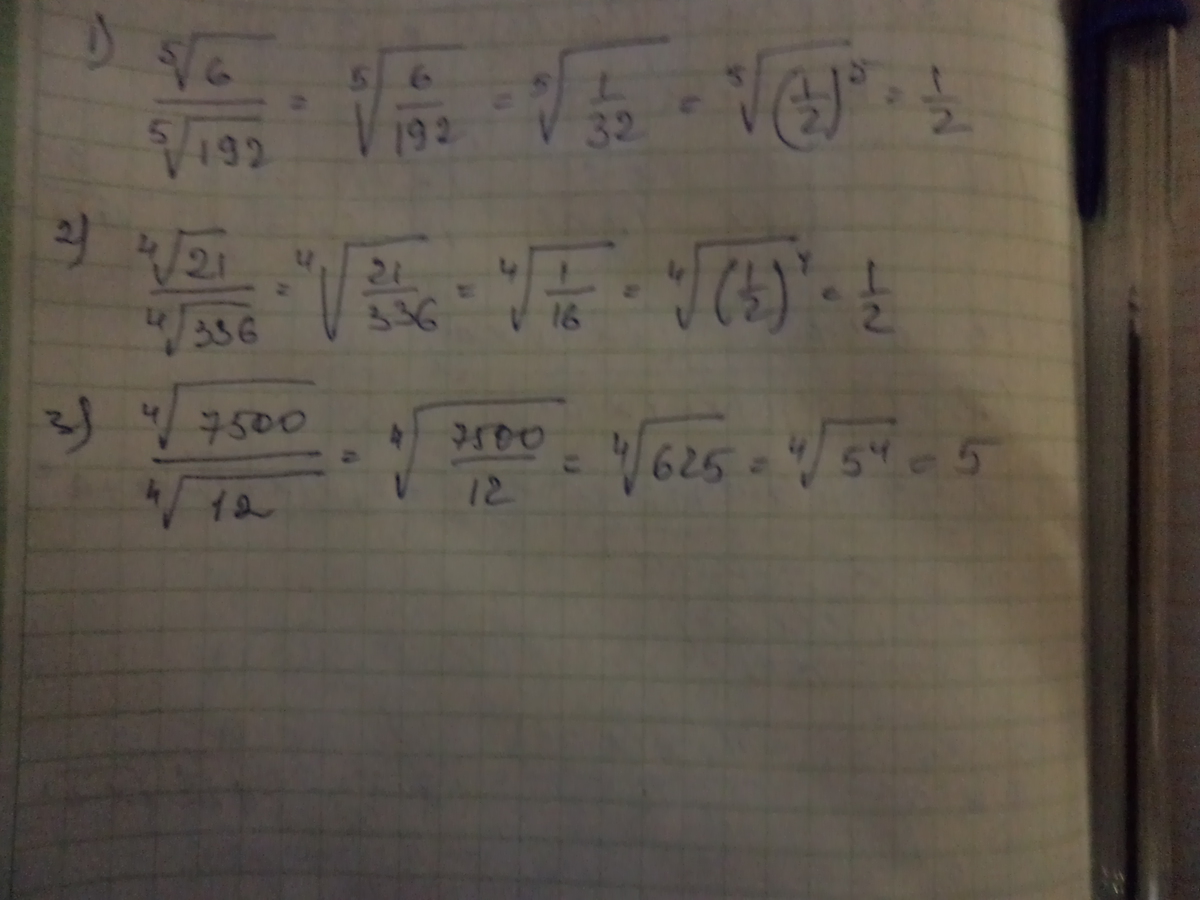 1) ⁵√6 / ⁵√192 = ⁵√(6/192) = ⁵√(1/32) = ⁵√((1/2)⁵) = 1/2
2) ⁴√21 / ⁴√336 = ⁴√(21/336) = ⁴√(1/16) = ⁴√((1/2)⁴) = 1/2
3) ⁴√7500 / ⁴√12 = ⁴√(7500/12) = ⁴√625 = ⁴√(5⁴) = 5